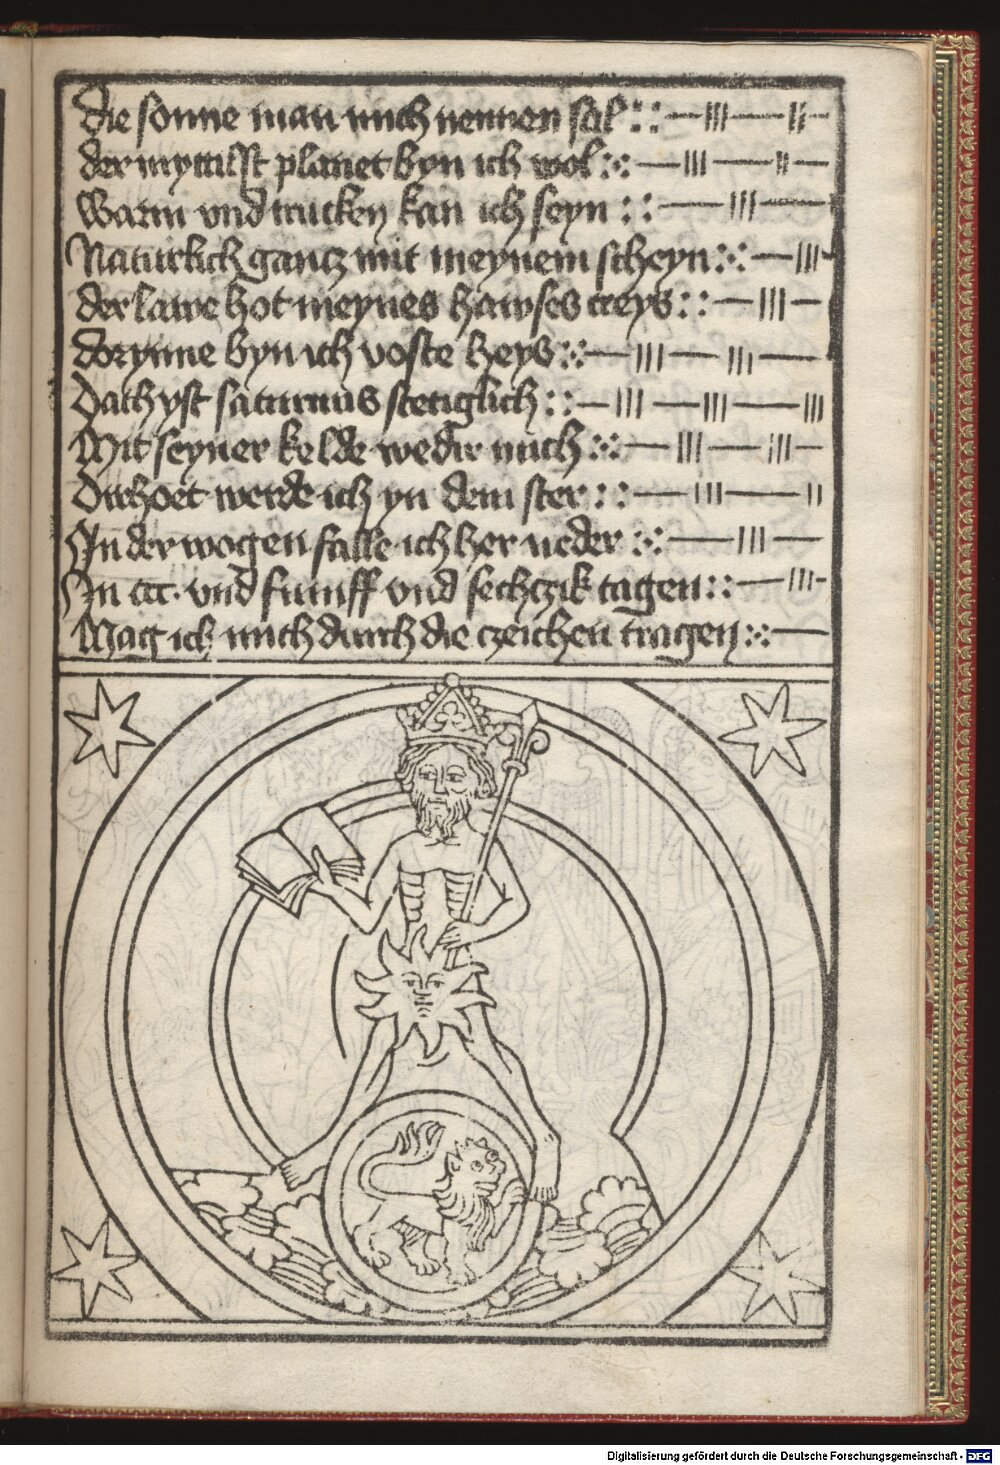 Die sonne man mich nennen sal
der myttilst planet byn ich wol
Warm vnd trucken kan ich seyn
Naturlich gantz mit meynem scheyn
der lawe hot meynes hawses creys
dorynne byn ich voste heys
Doch yst saturnus stetiglich
Mit seyner kelde wedir mich
Dirhoet werde ich yn dem ster
In der wogen falle ich her neder
In ccc. vnd fumff vnd sechczik tagen
Mag ich mich durch die czeichen tragen
Digitalisierung gefördert durch die Deutsche Forschungsgemeinschaft - DFG